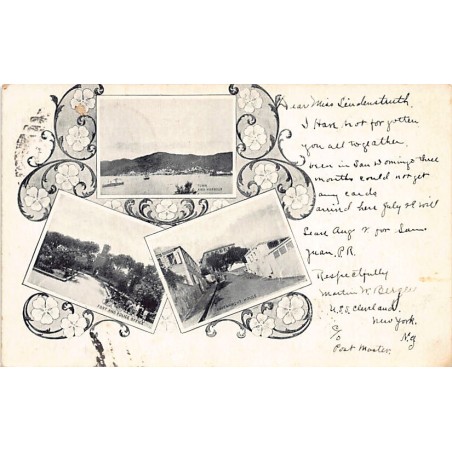 TOWN
AND HARBOUR
Dear Miss Lindenstruth.
I Have not for gotten
you all to geather.
been in San Domingo three
months could not get
any cards
arrived here July 28 will
Leave Aug 2 for San
Juan, P.R.
Respectfully
Martin K. Berger
U.S.S. Cleveland.
New York.
c/o N.Y
Post Master.